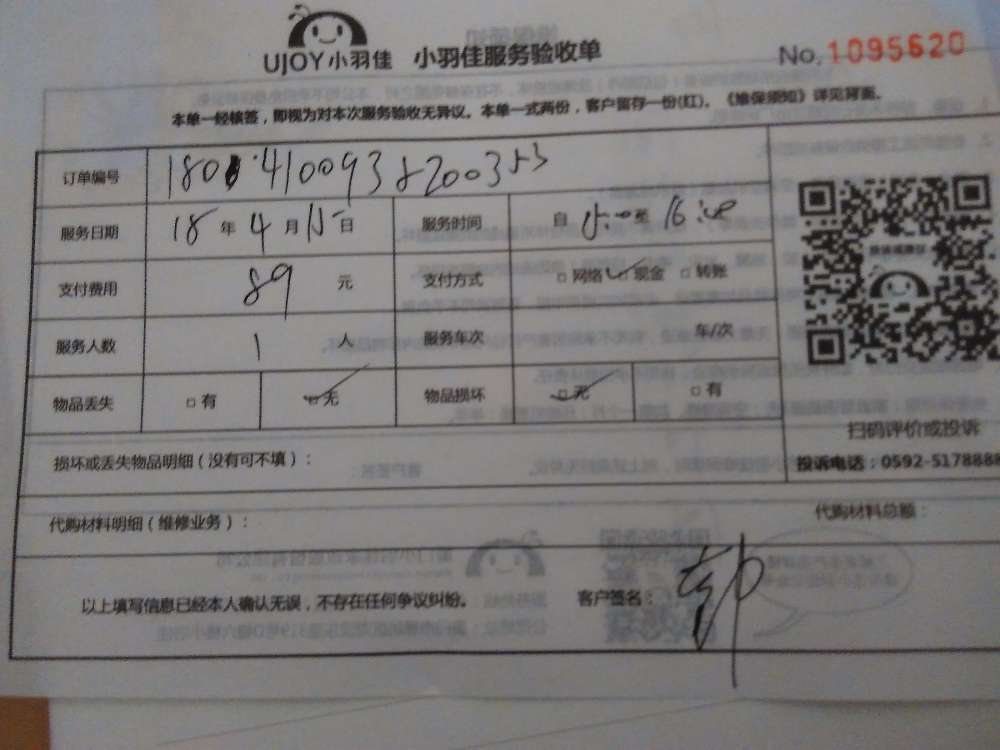 UJOY小羽佳 小羽佳服务验收单 No. 1095620
本单一经核签，即视为对本次服务验收无异议。本单一式两份，客户留存一份(红)。《维保须知》详见背面。
订单编号
服务日期 18 年 4 月 15 日 服务时间 自 15:00 至
支付费用 89 元 支付方式 □ 网络 □ 现金 □ 转账
服务人数 1 人 服务车次 车/次
物品丢失 □ 有 □ 无 物品损坏 □ 无 □ 有
扫码评价或投诉
损坏或丢失物品明细（没有可不填）： 投诉电话：0592-5178888
代购材料明细（维修业务）： 代购材料总额：
以上填写信息已经本人确认无误，不存在任何争议纠纷。 客户签名：